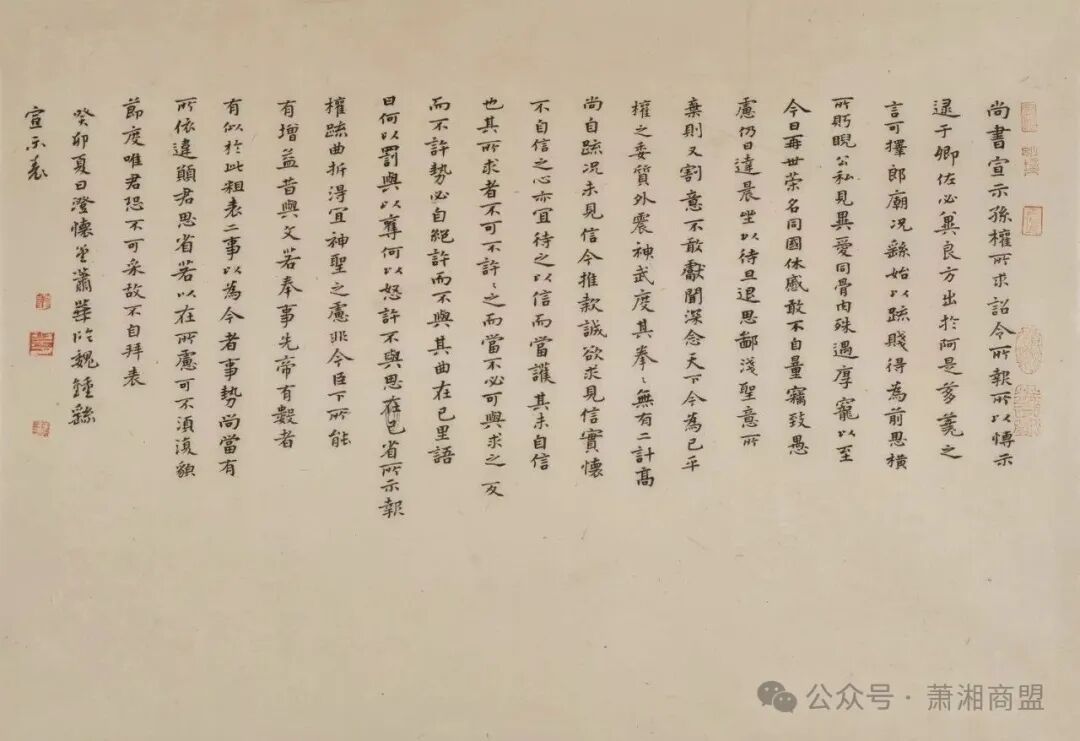 尚書宣示孫權所求詔令所報所以博示
逮于卿佐必冀良方出於阿是芻蕘之
言可擇郎廟況繇始以疏賤得為前恩橫
所眄睨公私見異愛同骨肉殊遇厚寵以至
今日再世榮名同國休慼敢不自量竊致愚
慮仍日達晨坐以待旦退思鄙淺聖意所
棄則又割意不敢獻聞深念天下今為已平
權之委質外震神武度其拳〻無有二計高
尚自疏況未見信今推款誠欲求見信實懷
不自信之心亦宜待之以信而當護其未自信
也其所求者不可不許〻之而當不必可與求之反
而不許勢必自絕許而不與其曲在己里語
曰何以罰與以奪何以怒許不與思在己省所示報
權疏曲折得宜神聖之慮非今臣下所能
有增益昔與文若奉事先帝有數者
有似於此粗表二事以為今者事勢尚當有
所依違願君思省若以在所慮可不須復貌
節度唯君恐不可采故不自拜表
癸卯夏日澄懷堂蕭華臨魏鍾繇
宣示表
公众号·萧湘商盟